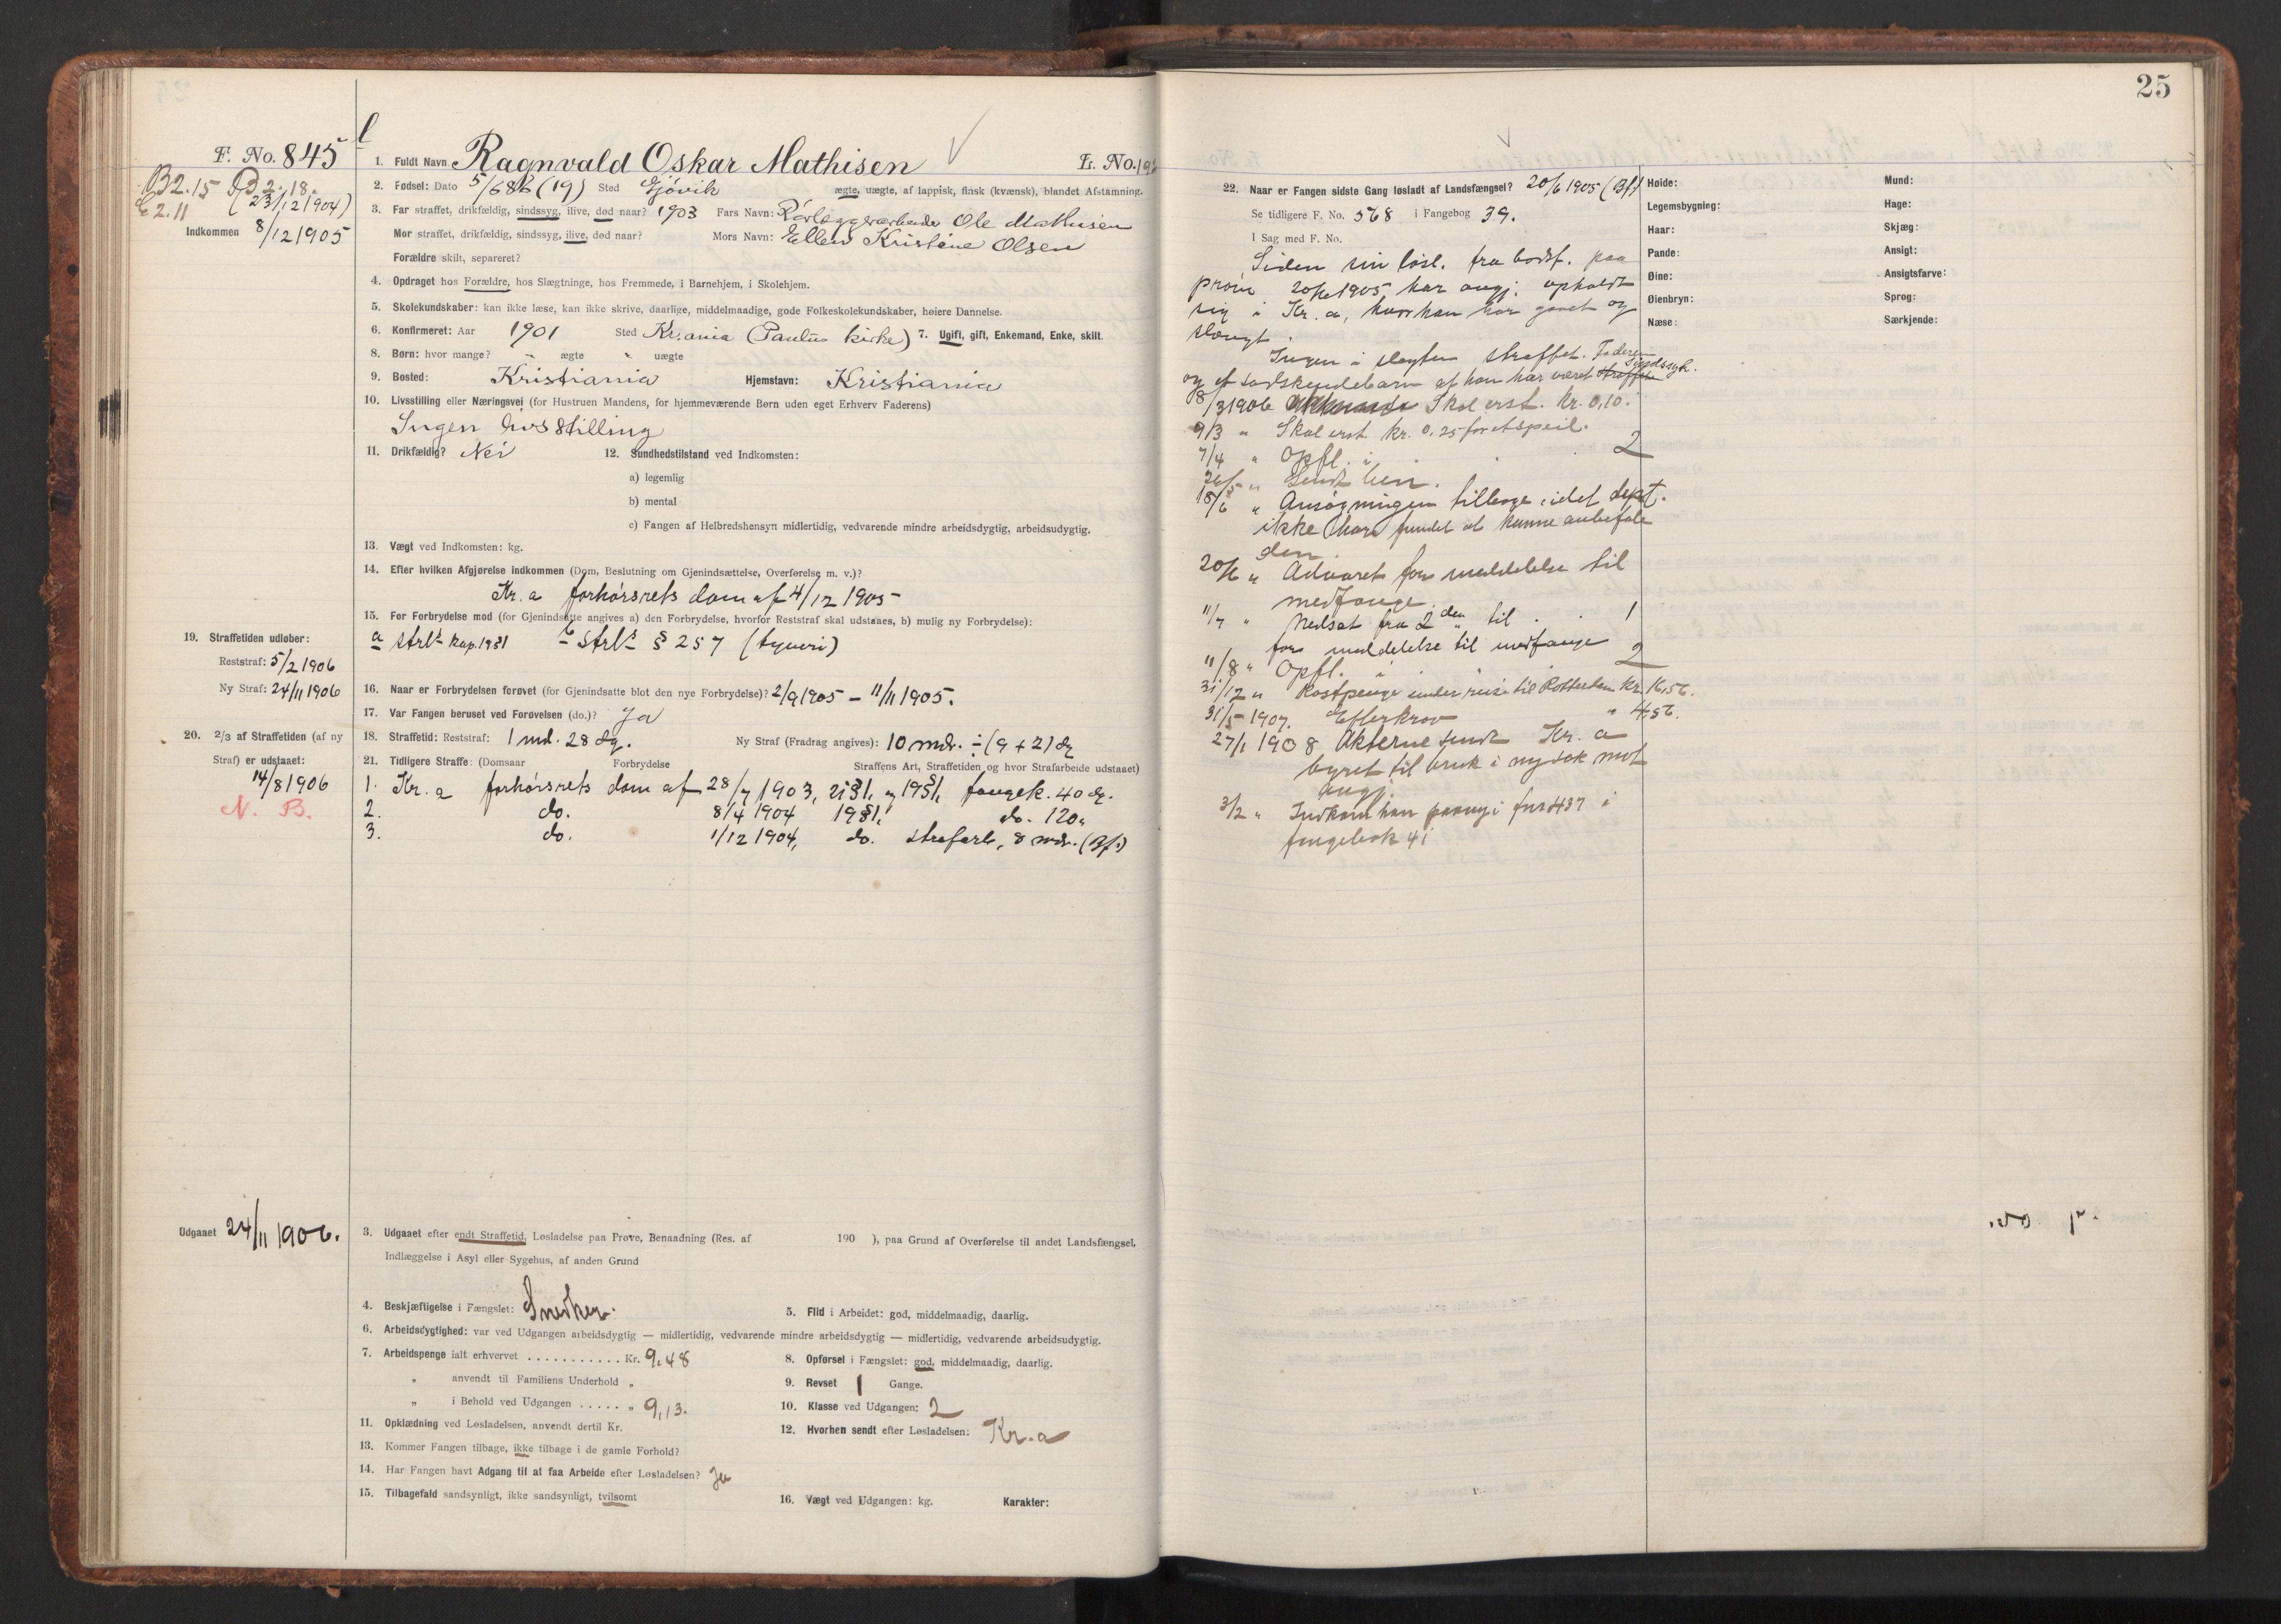 25
F. No. 845
l
1. Fuldt Navn Ragnvald Oskar Mathisen L. No.
B2.15 D 2.18.
E 2.11 (23/12 1904)
Indkommen 8/12 1905
2. Fødsel: Dato 5/6 86 (19) Sted Gjøvik ægte, uægte, af lappisk, finsk (kvænsk), blandet Afstamning.
3. Far straffet, drikfældig, sindssyg, ilive, død naar? 1903 Fars Navn: Rørlæggerarbeider Ole Mathisen
Mor straffet, drikfældig, sindssyg, ilive, død naar? Mors Navn: Ellen Kristine Olsen
Forældre skilt, separeret?
4. Opdraget hos Forældre, hos Slægtninge, hos Fremmede, i Barnehjem, i Skolehjem.
5. Skolekundskaber: kan ikke læse, kan ikke skrive, daarlige, middelmaadige, gode Folkeskolekundskaber, høiere Dannelse.
6. Konfirmeret: Aar 1901 Sted Kr.ania (Paulus kirke) 7. Ugift, gift, Enkemand, Enke, skilt.
8. Børn: hvor mange? " ægte " uægte
9. Bosted: Kristiania Hjemstavn: Kristiania
10. Livsstilling eller Næringsvei (for Hustruen Mandens, for hjemmeværende Børn uden eget Erhverv Faderens)
Ingen livsstilling
11. Drikfældig? Nei 12. Sundhedstilstand ved Indkomsten:
a) legemlig
b) mental
c) Fangen af Helbredshensyn midlertidig, vedvarende mindre arbeidsdygtig, arbeidsudygtig.
13. Vægt ved Indkomsten: kg.
14. Efter hvilken Afgjørelse indkommen (Dom, Beslutning om Gjenindsættelse, Overførelse m. v.)?
Kr. a forhørsrets dom af 4/12 1905
15. For Forbrydelse mod (for Gjenindsatte angives a) den Forbrydelse, hvorfor Reststraf skal udstaaes, b) mulig ny Forbrydelse):
a strl's kap. 19 § 1 b strl's § 257 (tyveri)
19. Straffetiden udløber:
Reststraf: 5/2 1906
Ny Straf: 24/11 1906
16. Naar er Forbrydelsen forøvet (for Gjenindsatte blot den nye Forbrydelse)? 2/9 1905 – 11/11 1905.
17. Var Fangen beruset ved Forøvelsen (do.)? Ja
20. 2/3 af Straffetiden (af ny Straf) er udstaaet:
14/8 1906
N. B.
18. Straffetid: Reststraf: 1 md. 28 dg. Ny Straf (Fradrag angives): 10 mdr. ÷ (9 + 2) dg
21. Tidligere Straffe: (Domsaar Forbrydelse Straffens Art, Straffetiden og hvor Strafarbeide udstaaet)
1. Kr. a forhørsrets dom af 28/7 1903, 21 § 1, og 19 § 1, fængsk. 40 dg.
2. do. 8/4 1904 19 § 1, do. 120 "
3. do. 1/12 1904, do. strafarb, 8 mdr. (Bf.)
Udgaaet 24/11 1906.
3. Udgaaet efter endt Straffetid, Løsladelse paa Prøve, Benaadning (Res. af 190 ), paa Grund af Overførelse til andet Landsfængsel,
Indlæggelse i Asyl eller Sygehus, af anden Grund
4. Beskjæftigelse i Fængslet: Snedker. 5. Flid i Arbeidet: god, middelmaadig, daarlig.
6. Arbeidsdygtighed: var ved Udgangen arbeidsdygtig — midlertidig, vedvarende mindre arbeidsdygtig — midlertidig, vedvarende arbeidsudygtig.
7. Arbeidspenge ialt erhvervet . . . . . . . . . . . Kr. 9.48 8. Opførsel i Fængslet: god, middelmaadig, daarlig.
" anvendt til Familiens Underhold " 9. Revset 1 Gange.
" i Behold ved Udgangen . . . . . " 9,13. 10. Klasse ved Udgangen: 2
11. Opklædning ved Løsladelsen, anvendt dertil Kr. 12. Hvorhen sendt efter Løsladelsen: Kr.a
13. Kommer Fangen tilbage, ikke tilbage i de gamle Forhold?
14. Har Fangen havt Adgang til at faa Arbeide efter Løsladelsen? Ja
15. Tilbagefald sandsynligt, ikke sandsynligt, tvilsomt 16. Vægt ved Udgangen: kg. Karakter:
22. Naar er Fangen sidste Gang løsladt af Landsfængsel? 20/6 1905 (Bf.)
Se tidligere F. No. 568 i Fangebog 39.
I Sag med F. No.
Siden sin løsl. fra bodsf. paa
prøve 20/6 1905 har angj. opholdt
sig i Kr. a, hvor han har gaaet og
slængt.
Ingen i slægten straffet. Faderen
og et sødskendebarn af han har været straffet sindssyk.
8/3 1906 Skal erst. Kr. 0,10.
9/3 " Skal erst. Kr. 0,25 for et speil.
7/4 " Opfl. i . . 2
26/5 " Sendt ben.
18/6 " Ansøgningen tilbage, idet dept.
ikke har fundet at kunne anbefale
den.
20/6 " Advaret for meddelelse til
medfange.
11/7 " Nedsat fra 2den til . . 1
for meddelelse til medfange
11/8 " Opfl. i 2
31/12 " Kostpenge under reise til Rotterdam Kr. 16,56.
31/5 1907. Efterkrav " 4,56.
27/1 1908 Akterne sendt Kr. a
byret til bruk i ny sak mot
angj.
3/2 " Indkom han paany i fnr 437 i
fangebok 41
Høide: Mund:
Legemsbygning: Hage:
Haar: Skjæg:
Pande: Ansigt:
Øine: Ansigtsfarve:
Øienbryn: Sprog:
Næse: Særkjende: